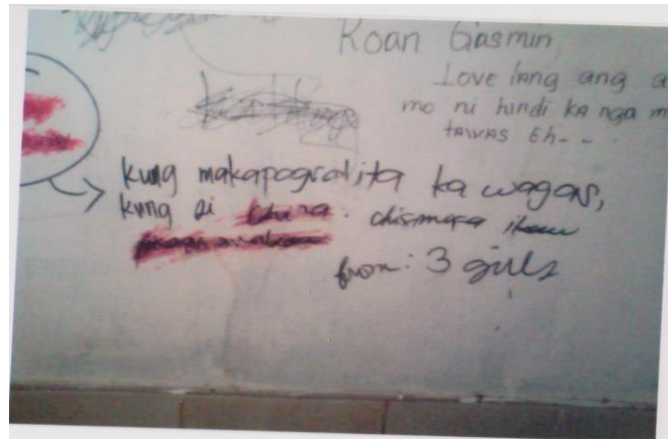 Roan Gasmin
Love lang ang a
mo ni hindi ka nga m
tawas Eh--
kung makapagsalita ka wagas,
kung si chismosa ikaw
from: 3 girls